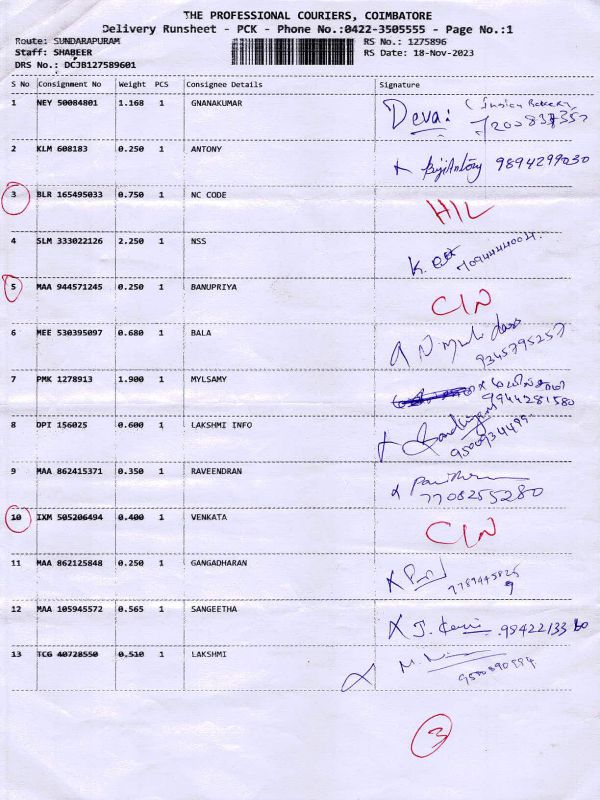 THE PROFESSIONAL COURIERS, COIMBATORE
Delivery Runsheet - PCK - Phone No.:0422-3505555 - Page No.:1
Route: SUNDARAPURAM RS No.: 1275896
Staff: SHABEER RS Date: 18-Nov-2023
DRS No.: DCJB127589601
S No Consignment No Weight PCS Consignee Details Signature
1 NEY 50084801 1.168 1 GNANAKUMAR Deva:
2 KLM 608183 0.250 1 ANTONY 9894299030
3 BLR 165495033 0.750 1 NC CODE H/L
4 SLM 333022126 2.250 1 NSS K.
5 MAA 944571245 0.250 1 BANUPRIYA C/N
6 MEE 530395097 0.680 1 BALA 9345795257
7 PMK 1278913 1.900 1 MYLSAMY 9944281580
8 DPI 156025 0.600 1 LAKSHMI INFO
9 MAA 862415371 0.350 1 RAVEENDRAN 7708255280
10 IXM 505206494 0.400 1 VENKATA C/N
11 MAA 862125848 0.250 1 GANGADHARAN
12 MAA 105945572 0.565 1 SANGEETHA J. 98422133 60
13 TCG 40728550 0.510 1 LAKSHMI M.
3